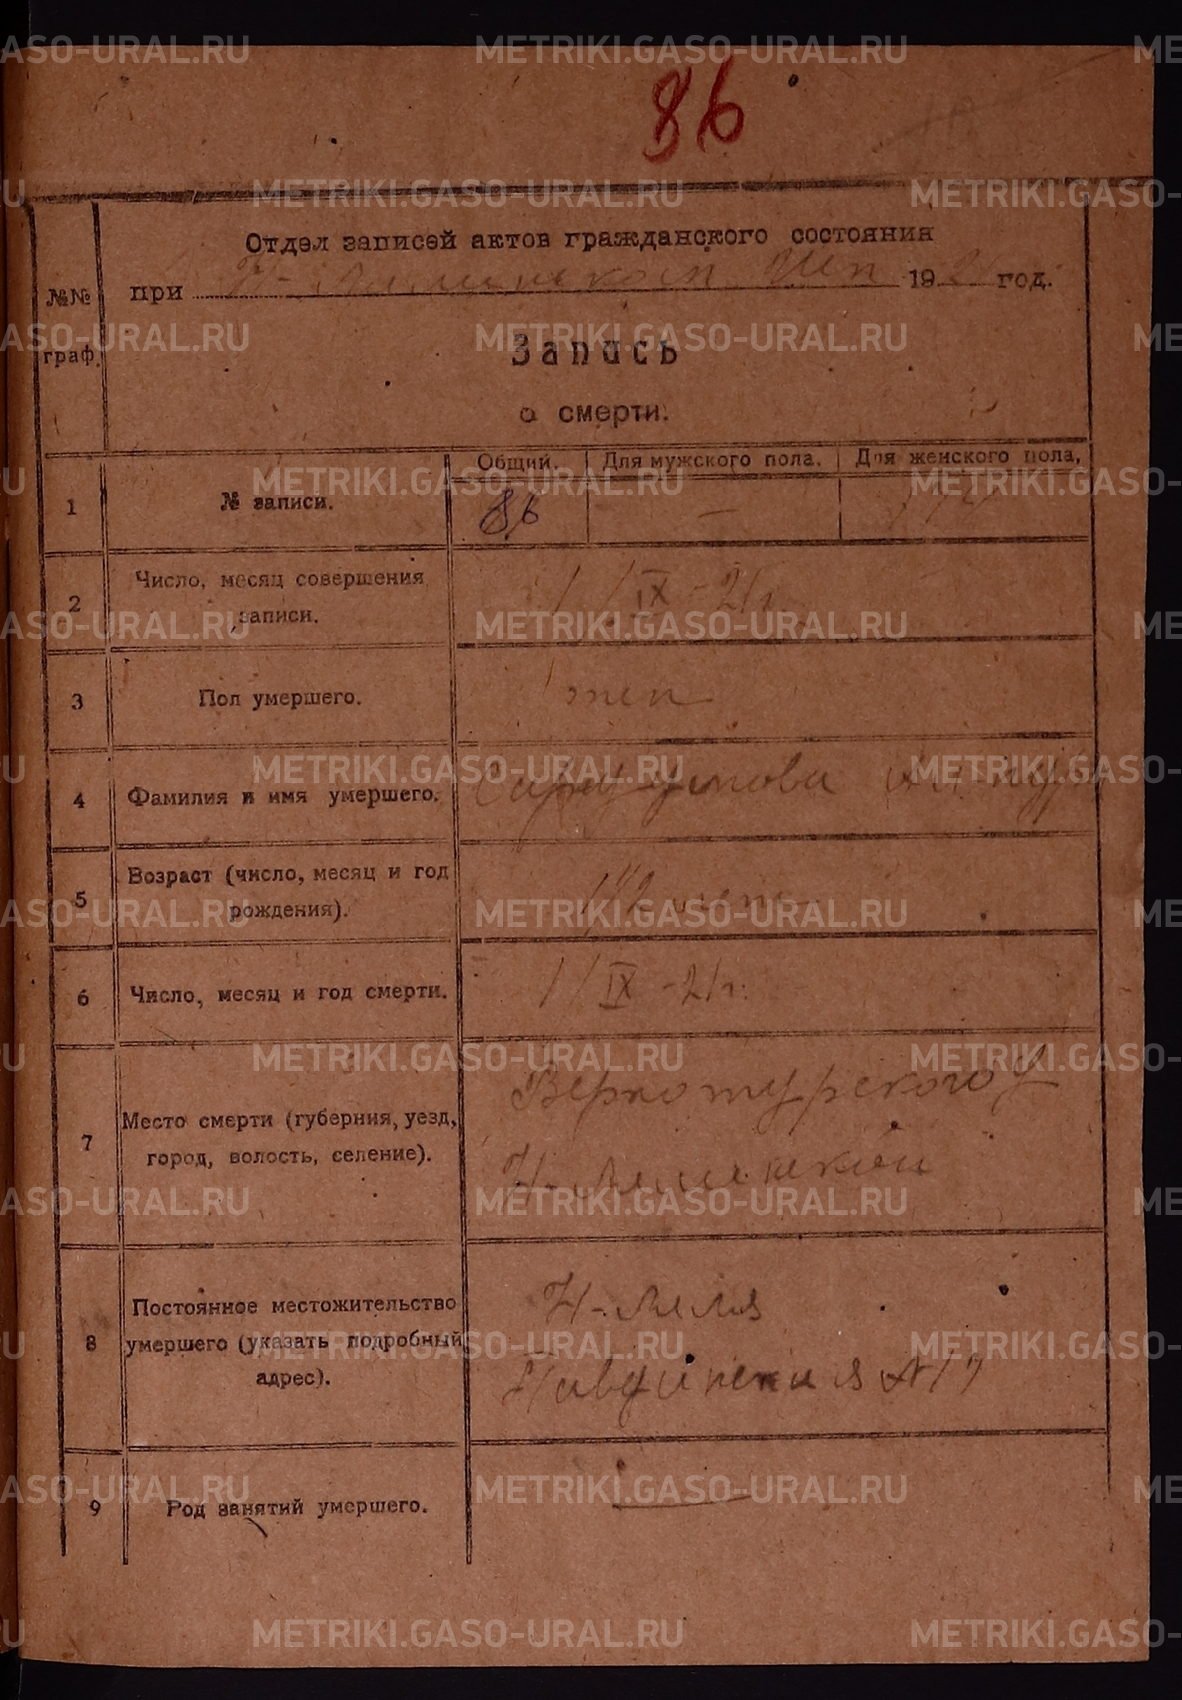 86
Отдел записей актов гражданского состояния
№№ граф.
при Н-Лялинском 1921 год.
Запись
о смерти.
Общий. Для мужского пола. Для женского пола.
1 № записи. 86 —
2 Число, месяц совершения записи. 1/IX-21г.
3 Пол умершего. жен
4 Фамилия и имя умершего.
5 Возраст (число, месяц и год рождения). 1 1/2
6 Число, месяц и год смерти. 1/IX-21г.
7 Место смерти (губерния, уезд, город, волость, селение). Верхотурского у
Н-Лялинской
8 Постоянное местожительство умершего (указать подробный адрес). Н-Ляля
Павдинская №
9 Род занятий умершего. —
METRIKI.GASO-URAL.RU